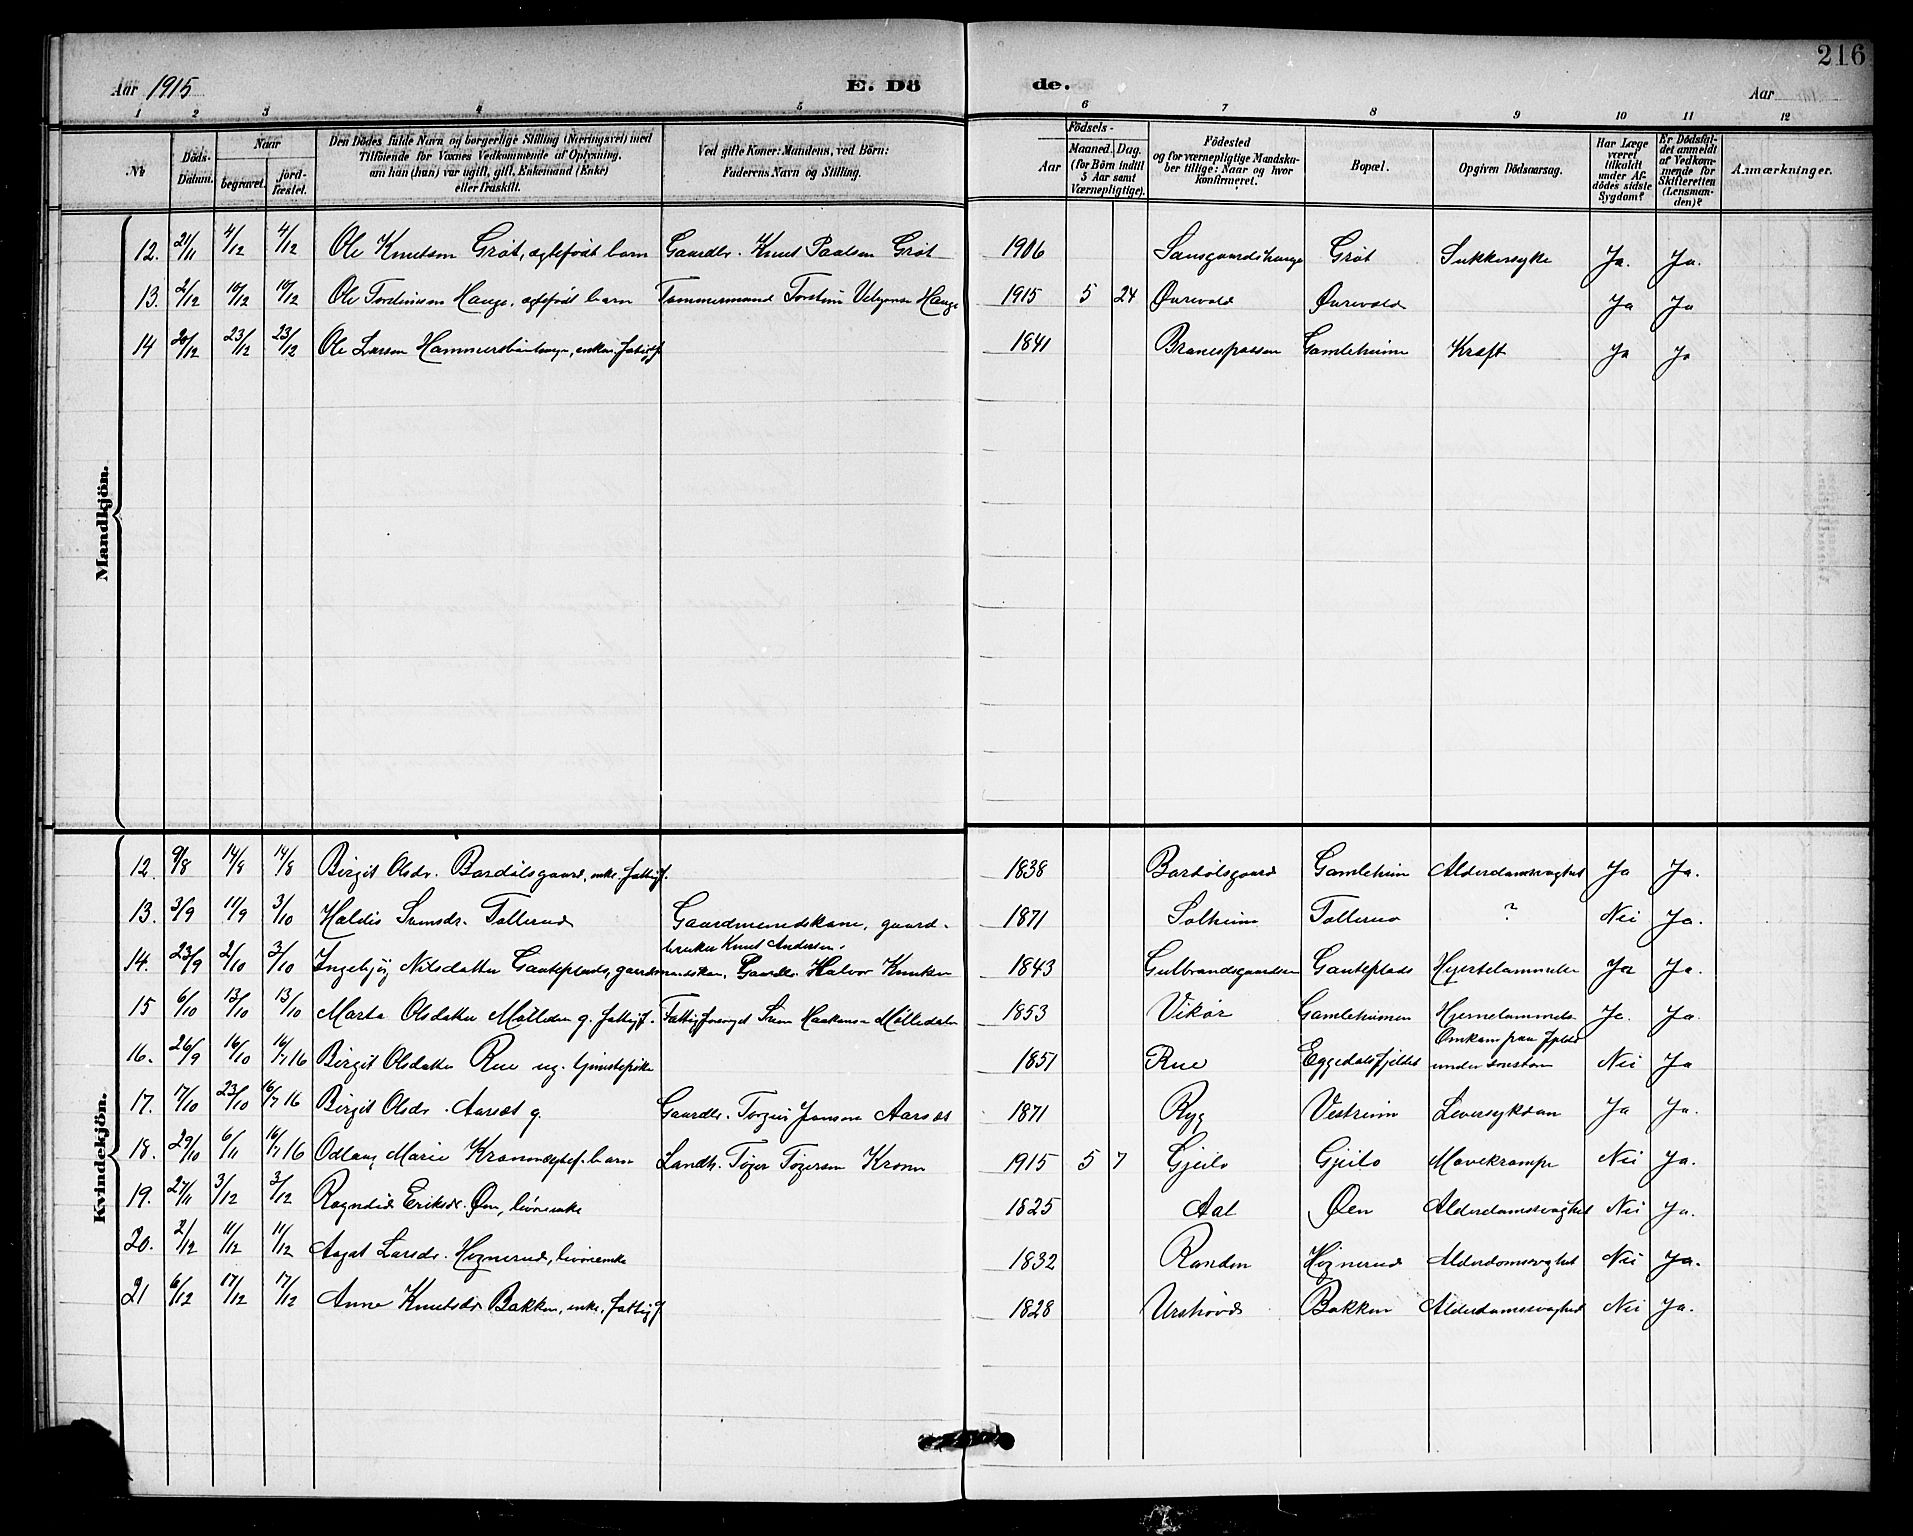 216
Aar 1915 E. Dö de. Aar
1 2 3 4 5 6 7 8 9 10 11 12
No
Döds-Datum.
Naar begravet. jord-fæstet.
Den Dödes fulde Navn og borgerlige Stilling (Næringsvei) med Tilföiende for Voxnes Vedkommende af Oplysning, om han (hun) var ugift, gift, Enkemand (Enke) eller fraskilt.
Ved gifte Koner: Mandens, ved Börn: Faderens Navn og Stilling.
Födsels-
Aar Maaned. Dag. (for Börn indtil 5 Aar samt Værnepligtige).
Födested og for værnepligtige Mandskaber tillige: Naar og hvor konfirmeret.
Bopæl.
Opgiven Dödsaarsag.
Har Læge været tilkaldt under Afdödes sidste Sygdom?
Er Dödsfaldet anmeldt af Vedkommende for Skifteretten (Lensmanden)?
Anmærkninger.
Mandkjön.
12. 21/11 4/12 4/12 Ole Knutsen Grøt, ægtefødt barn Gaardbr. Knut Paalsen Grøt 1906 Grøt Sukkersyke Ja. Ja.
13. 2/12 10/12 10/12 Ole Torsteinsen Hauge, ægtefødt barn Tømmermand Torstein Hauge 1915 5 24 Øvrevold Øvrevold Ja Ja
14 20/12 23/12 23/12 Ole Larsen enkem. fattigf. 1841 Gamleheim Kræft Ja Ja
Kvindekjön.
12. 9/8 14/8 14/8 Birgit Olsdr. Bardølsgaard, enke. fattigf. 1838 Bardølsgaard Gamleheim Alderdomssvaghet Ja Ja.
13. 3/9 11/9 3/10 Haldis Svensdr. Tollerud Gaardmandskone, gaard- 1871 Solheim Tollerud ? Nei Ja.
bruker Knut Andersen.
14. 23/9 2/10 3/10 Ingebjør Nilsdatter Ganteplads, gaardmandskon. Gaardbr. Halvor Knutsen 1843 Gulbrandsgaarden Ganteplads Hjertelammelse Ja Ja.
15 6/10 13/10 13/10 Marta Olsdatter Mølledn g. fattigf. Fattigforsørget Svein Haakonsen Mølledalen 1853 Vikør Gamleheimen Hjernelammelse Ja. Ja.
16. 26/9 16/10 16/7 16 Birgit Olsdatter Rue ug. tjenestepike 1851 Rue Eggedalsfjeldet Omkom paa fjeldet under snestorm Nei Ja
17. 17/10 23/10 16/7 16 Birgit Olsdr. Aarset g. Gaardbr. Torgeir Jonsen Aarset 1871 Ryg Vestreim Leversykdom Ja Ja.
18. 29/10 6/11 16/7 16 Odlaug Marie Kronn ægtef. barn Landh. Tøger Tøgersen Kronn 1915 5 7 Gjeilo Gjeilo Mavekrampe Nei Ja.
19. 27/11 3/12 3/12 Ragndid Eriksdr. Øen, livørenke 1825 Aal Øen Alderdomssvaghet Nei Ja.
20. 2/12 11/12 11/12 Aagot Larsdr. Høgnerud, livørenke 1832 Randen Høgnerud Alderdomssvaghet Nei Ja.
21 6/12 17/12 17/12 Anne Knutsdr Bakken, enke. fattigf 1828 Urshovd Bakken Alderdomssvaghed Nei Ja.